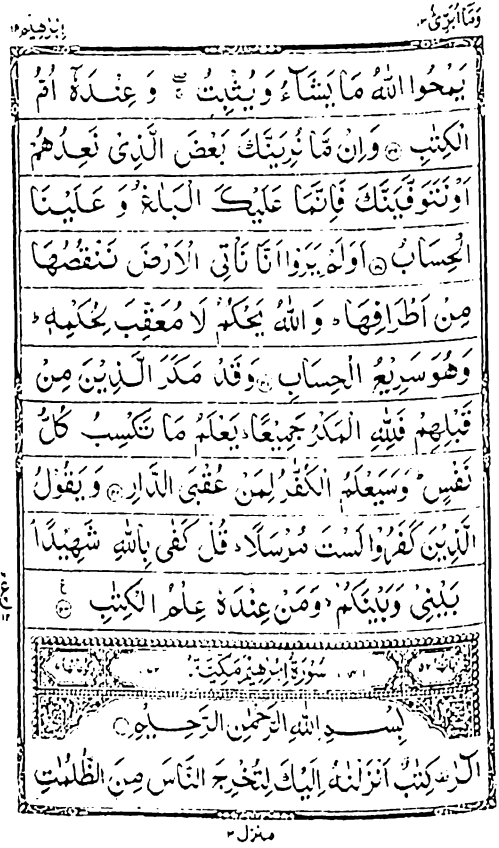 وَمَا اُبَرِّئُ ١٣ اِبْرٰهِيْم ١٤
يَمْحُوا اللّٰهُ مَا يَشَآءُ وَيُثْبِتُ ۖ وَعِنْدَهٗۤ اُمُّ
الْكِتٰبِ ۝٣٩ وَاِنْ مَّا نُرِيَنَّكَ بَعْضَ الَّذِىْ نَعِدُهُمْ
اَوْ نَتَوَفَّيَنَّكَ فَاِنَّمَا عَلَيْكَ الْبَلٰغُ وَعَلَيْنَا
الْحِسَابُ ۝٤٠ اَوَلَمْ يَرَوْا اَنَّا نَاْتِى الْاَرْضَ نَنْقُصُهَا
مِنْ اَطْرَافِهَا ؕ وَاللّٰهُ يَحْكُمُ لَا مُعَقِّبَ لِحُكْمِهٖ ؕ
وَهُوَ سَرِيْعُ الْحِسَابِ ۝٤١ وَقَدْ مَكَرَ الَّذِيْنَ مِنْ
قَبْلِهِمْ فَلِلّٰهِ الْمَكْرُ جَمِيْعًا ؕ يَعْلَمُ مَا تَكْسِبُ كُلُّ
نَفْسٍ ؕ وَسَيَعْلَمُ الْكُفّٰرُ لِمَنْ عُقْبَى الدَّارِ ۝٤٢ وَيَقُوْلُ
الَّذِيْنَ كَفَرُوْا لَسْتَ مُرْسَلًا ؕ قُلْ كَفٰى بِاللّٰهِ شَهِيْدًا
بَيْنِىْ وَبَيْنَكُمْ ۙ وَمَنْ عِنْدَهٗ عِلْمُ الْكِتٰبِ ۝٤٣
سُوْرَةُ اِبْرٰهِيْمَ مَكِّيَّةٌ
بِسْمِ اللّٰهِ الرَّحْمٰنِ الرَّحِيْمِ
الٓرٰ ۟ كِتٰبٌ اَنْزَلْنٰهُ اِلَيْكَ لِتُخْرِجَ النَّاسَ مِنَ الظُّلُمٰتِ
منزل ٣